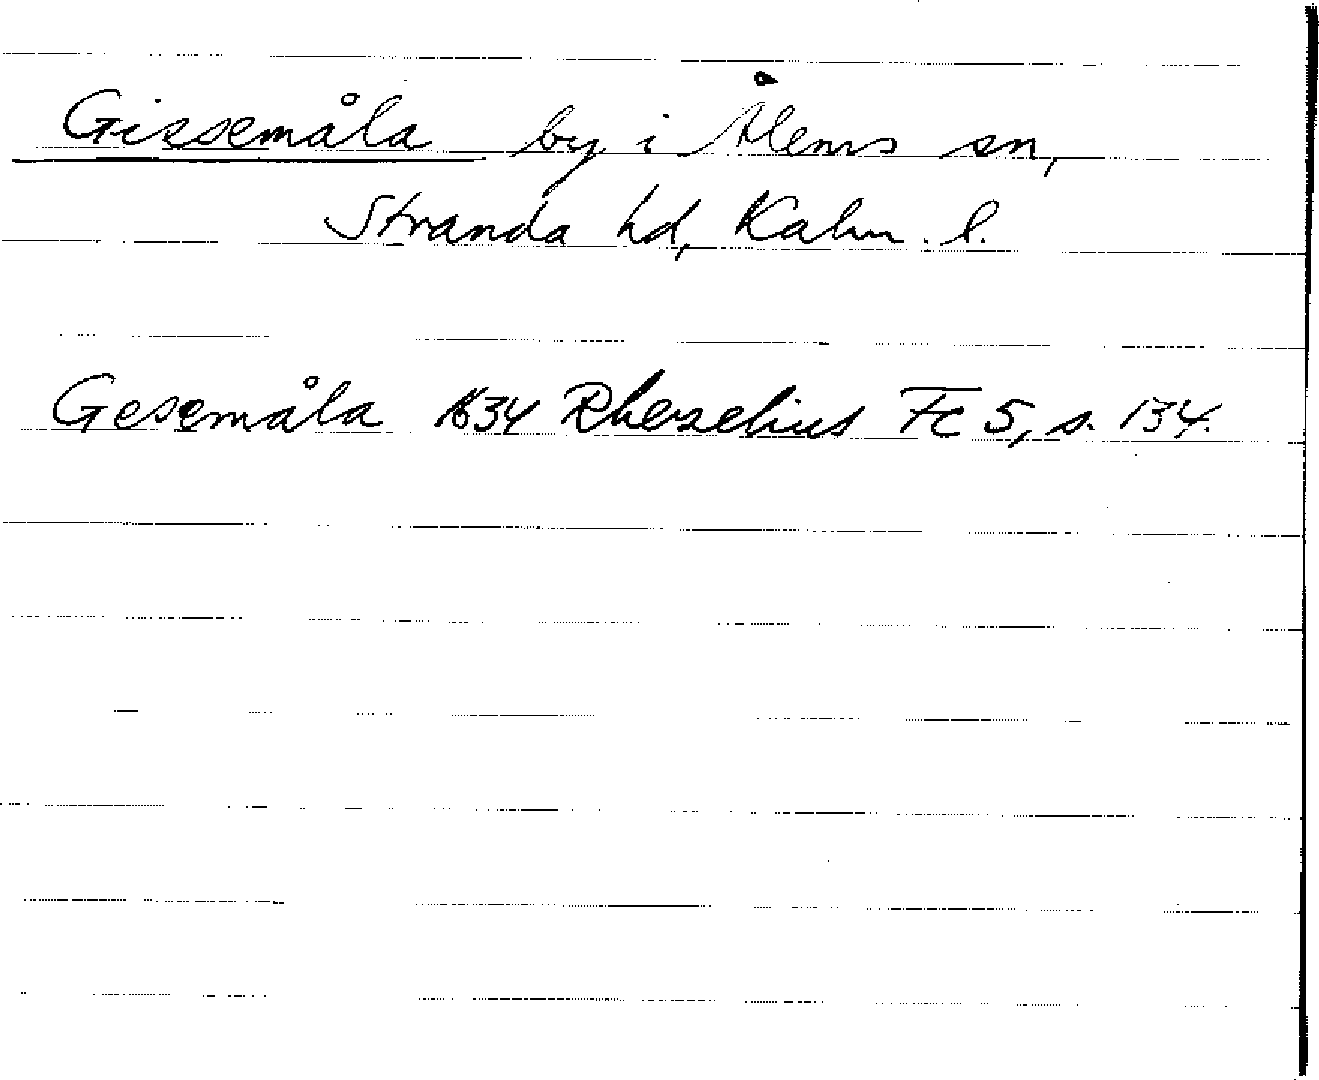 Gissemåla by i Ålems sn,
Stranda hd, Kalm. l.
Gesemåla 1634 Rhezelius Fc 5, s. 134.